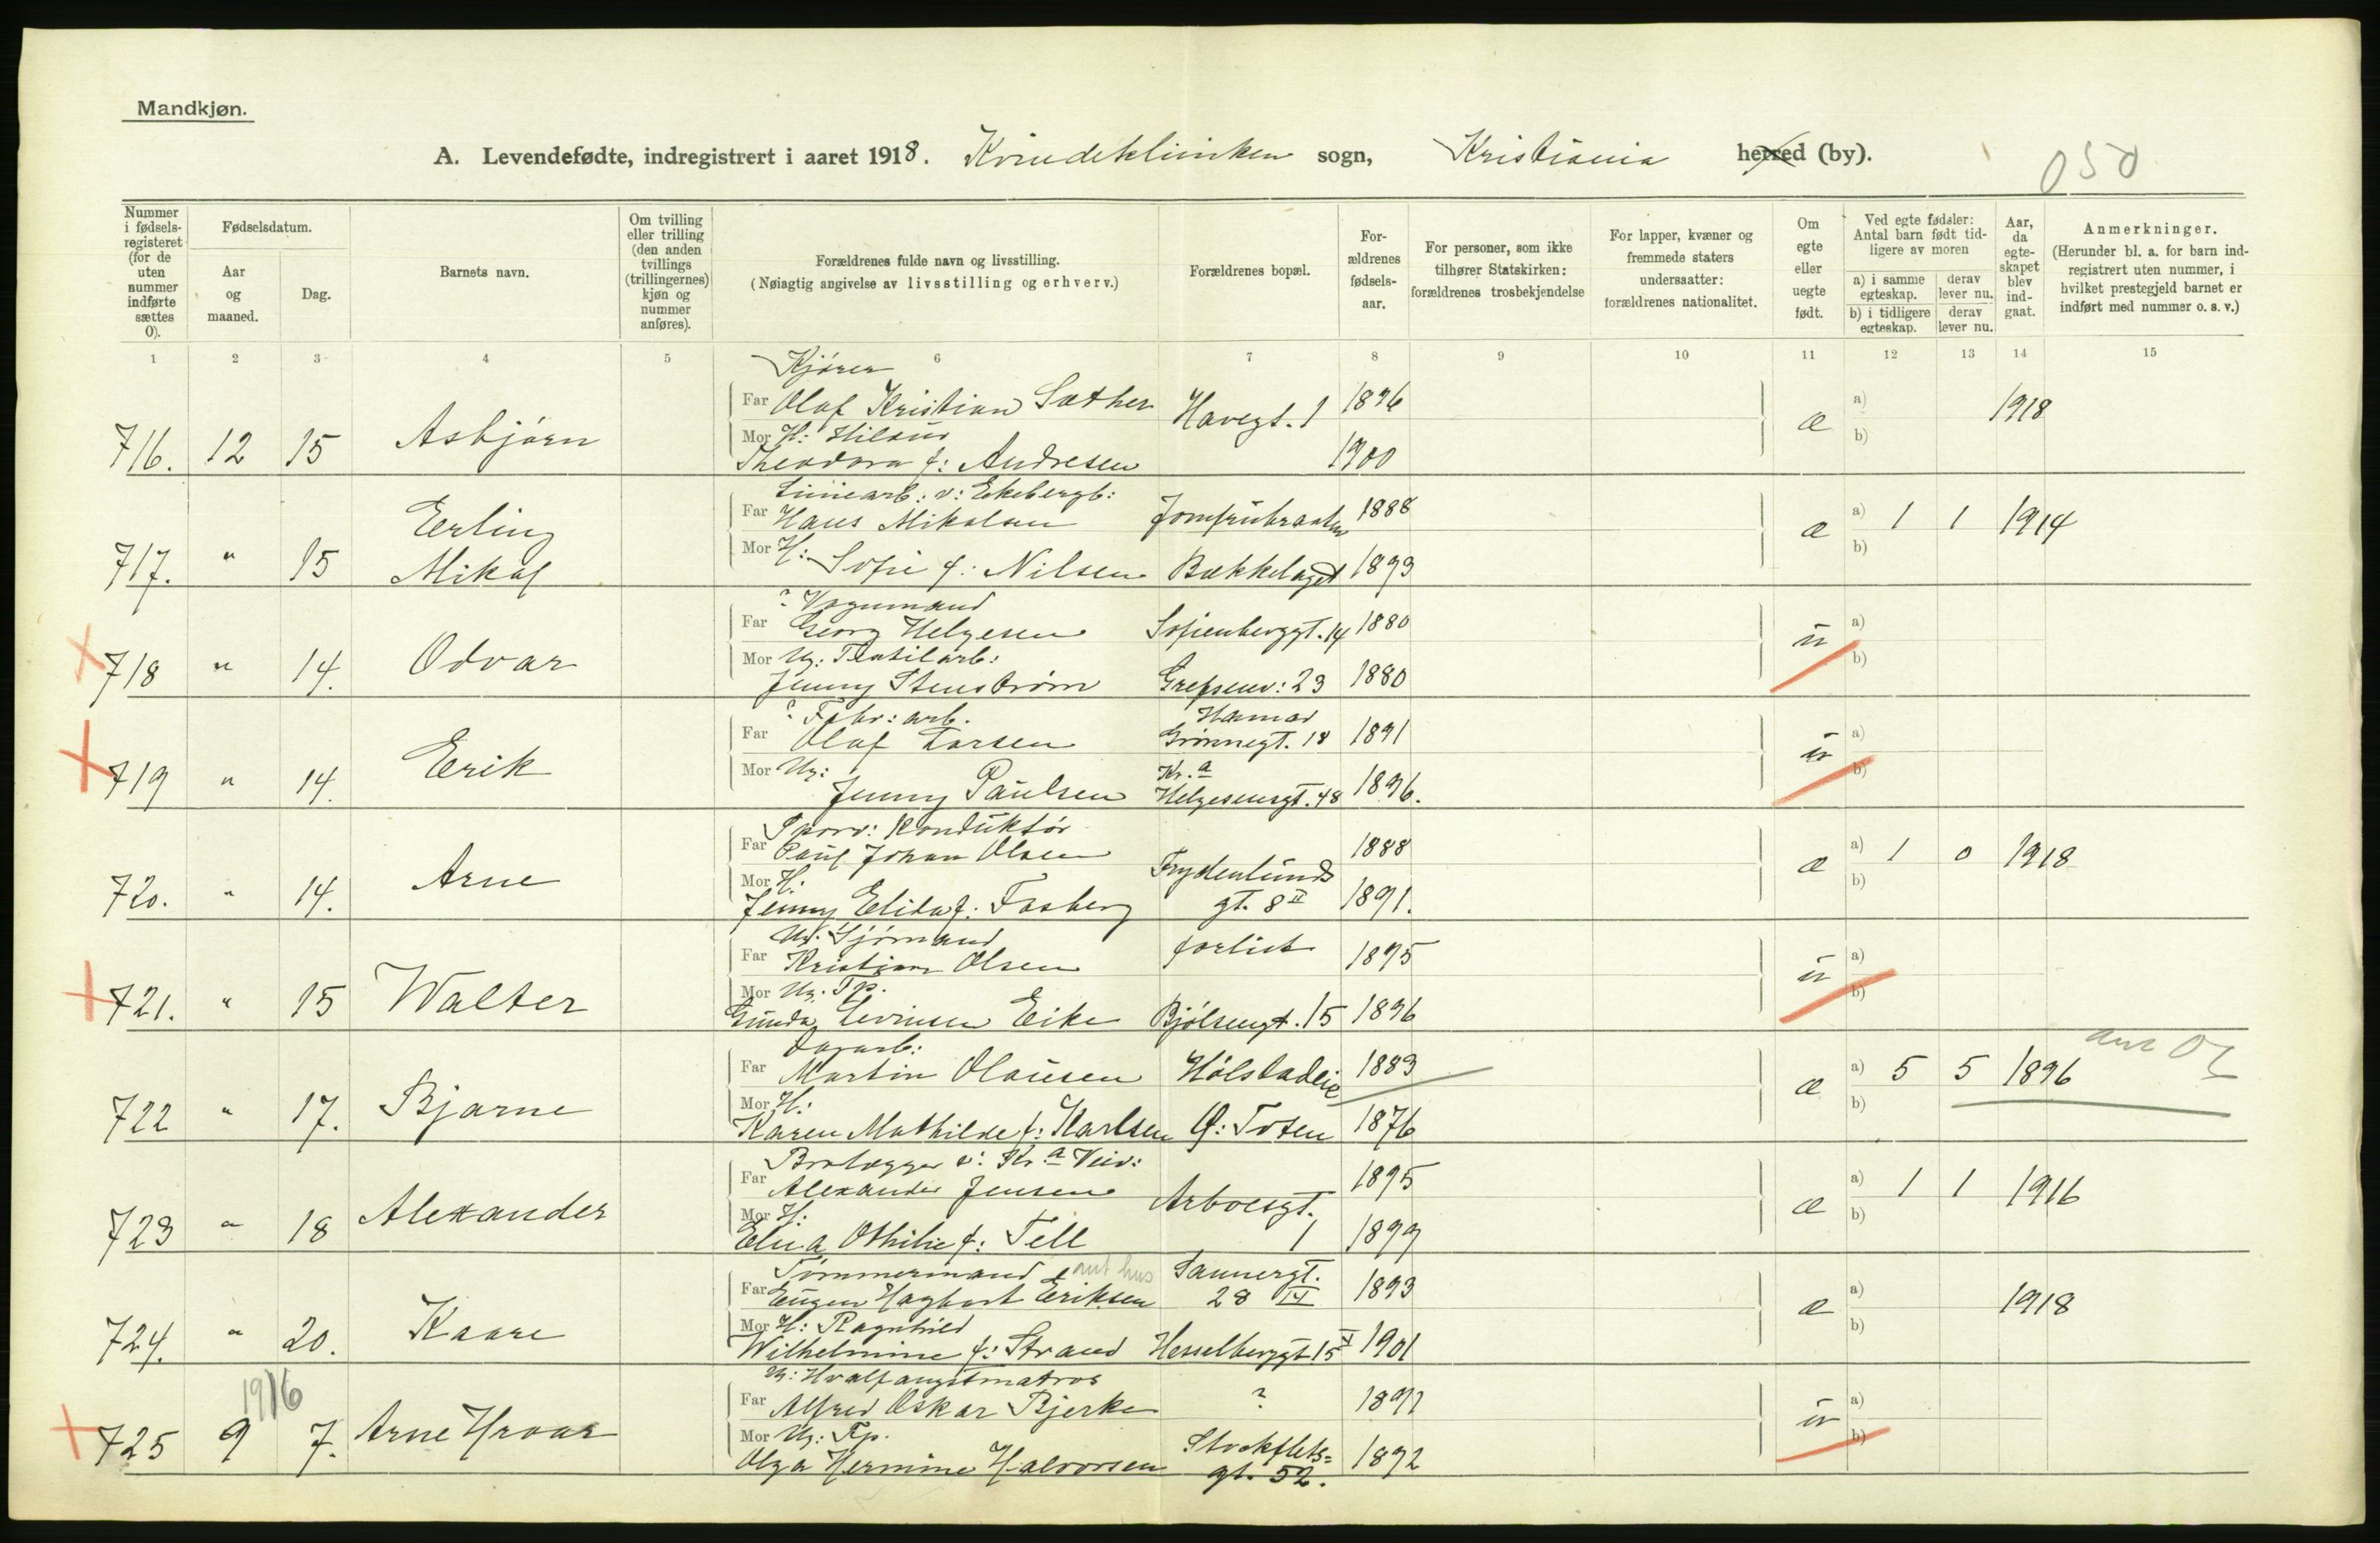 Mandkjøn.
A. Levendefødte, indregistrert i aaret 1918. Kvindeklinikken sogn, Kristiania herred (by).
050
Nummer i fødselsregisteret (for de uten nummer indførte sættes 0).
Fødselsdatum.
Aar og maaned.
Dag.
Barnets navn.
Om tvilling eller trilling (den anden tvillings (trillingernes) kjøn og nummer anføres).
Forældrenes fulde navn og livsstilling.
(Nøiagtig angivelse av livsstilling og erhverv.)
Forældrenes bopæl.
Forældrenes fødselsaar.
For personer, som ikke tilhører Statskirken: forældrenes trosbekjendelse
For lapper, kvæner og fremmede staters undersaatter: forældrenes nationalitet.
Om egte eller uegte født.
Ved egte fødsler: Antal barn født tidligere av moren
a) i samme egteskap. derav lever nu.
b) i tidligere egteskap. derav lever nu.
Aar, da egteskapet blev indgaat.
Anmerkninger.
(Herunder bl. a. for barn indregistrert uten nummer, i hvilket prestegjeld barnet er indført med nummer o. s. v.)
1 2 3 4 5 6 7 8 9 10 11 12 13 14 15
Kjører
Far Olaf Kristian Sæther Havegt. 1 1896
716. 12 15 Asbjørn æ a) b) 1918
Mor H: Hildur
Theodora f: Andresen 1900
Liniearb: v: Ekebergb:
Far Hans Mikalsen Jomfrubraaten 1888
717. " 15 Erling Mikal æ a) 1 1 1914 b)
Mor H: Sofie f: Nilsen Bækkelaget 1893
? Vognmand
Far Georg Helgesen Sofienberggt. 14 1880
718 " 14. Odvar u a) b)
Mor Ug: Textilarb:
Jenny Stenstrøm Grefsenv: 23 1880
? Fabr: arb. Hamar
Far Olaf Larsen Grønnegt. 18 1891
719 " 14. Erik u a) b)
Mor Ug: Kr.a
Jenny Paulsen Helgesensgt. 48 1896.
Sporv: Konduktør
Far Paul Johan Olsen Frydenlunds 1888
720. " 14. Arne æ a) 1 0 1918 b)
Mor H:
Jenny Elida f: Fosberg gt. 8 II 1891.
Ug. Sjømand
Far Kristian Olsen forlist 1895
721. " 15 Walter u a) b)
Mor Ug. Tp.
Gunda Levinsen Eike Bjølsengt. 15 1896
Dagarb:
Far Martin Olausen Hølstadeie 1883
722 " 17. Bjarne æ a) 5 5 1896 b)
Mor H:
Karen Mathilde f: Karlsen Ø: Toten 1876
Brolægger v: Kr.a Veiv:
Far Alexander Jensen Arboesgt. 1895
723 " 18 Alexander æ a) 1 1 1916 b)
Mor H:
Elna Othilie f: Tell 1 1899
Tømmermand Sannergt.
Far Eugen Hagbart Eriksen 28 IV 1893
724. " 20. Kaare æ a) b) 1918
Mor H: Ragnhild
Wilhelmine f: Strand Hesselberggt 15 1901
U: Hvalfangstmatros
Far Alfred Oskar Bjerke ? 1891
1916
725 9 7. Arne Hroar u a) b)
Mor Ug: Tp.
Olga Hermine Halvorsen Stockflets=gt. 52. 1892